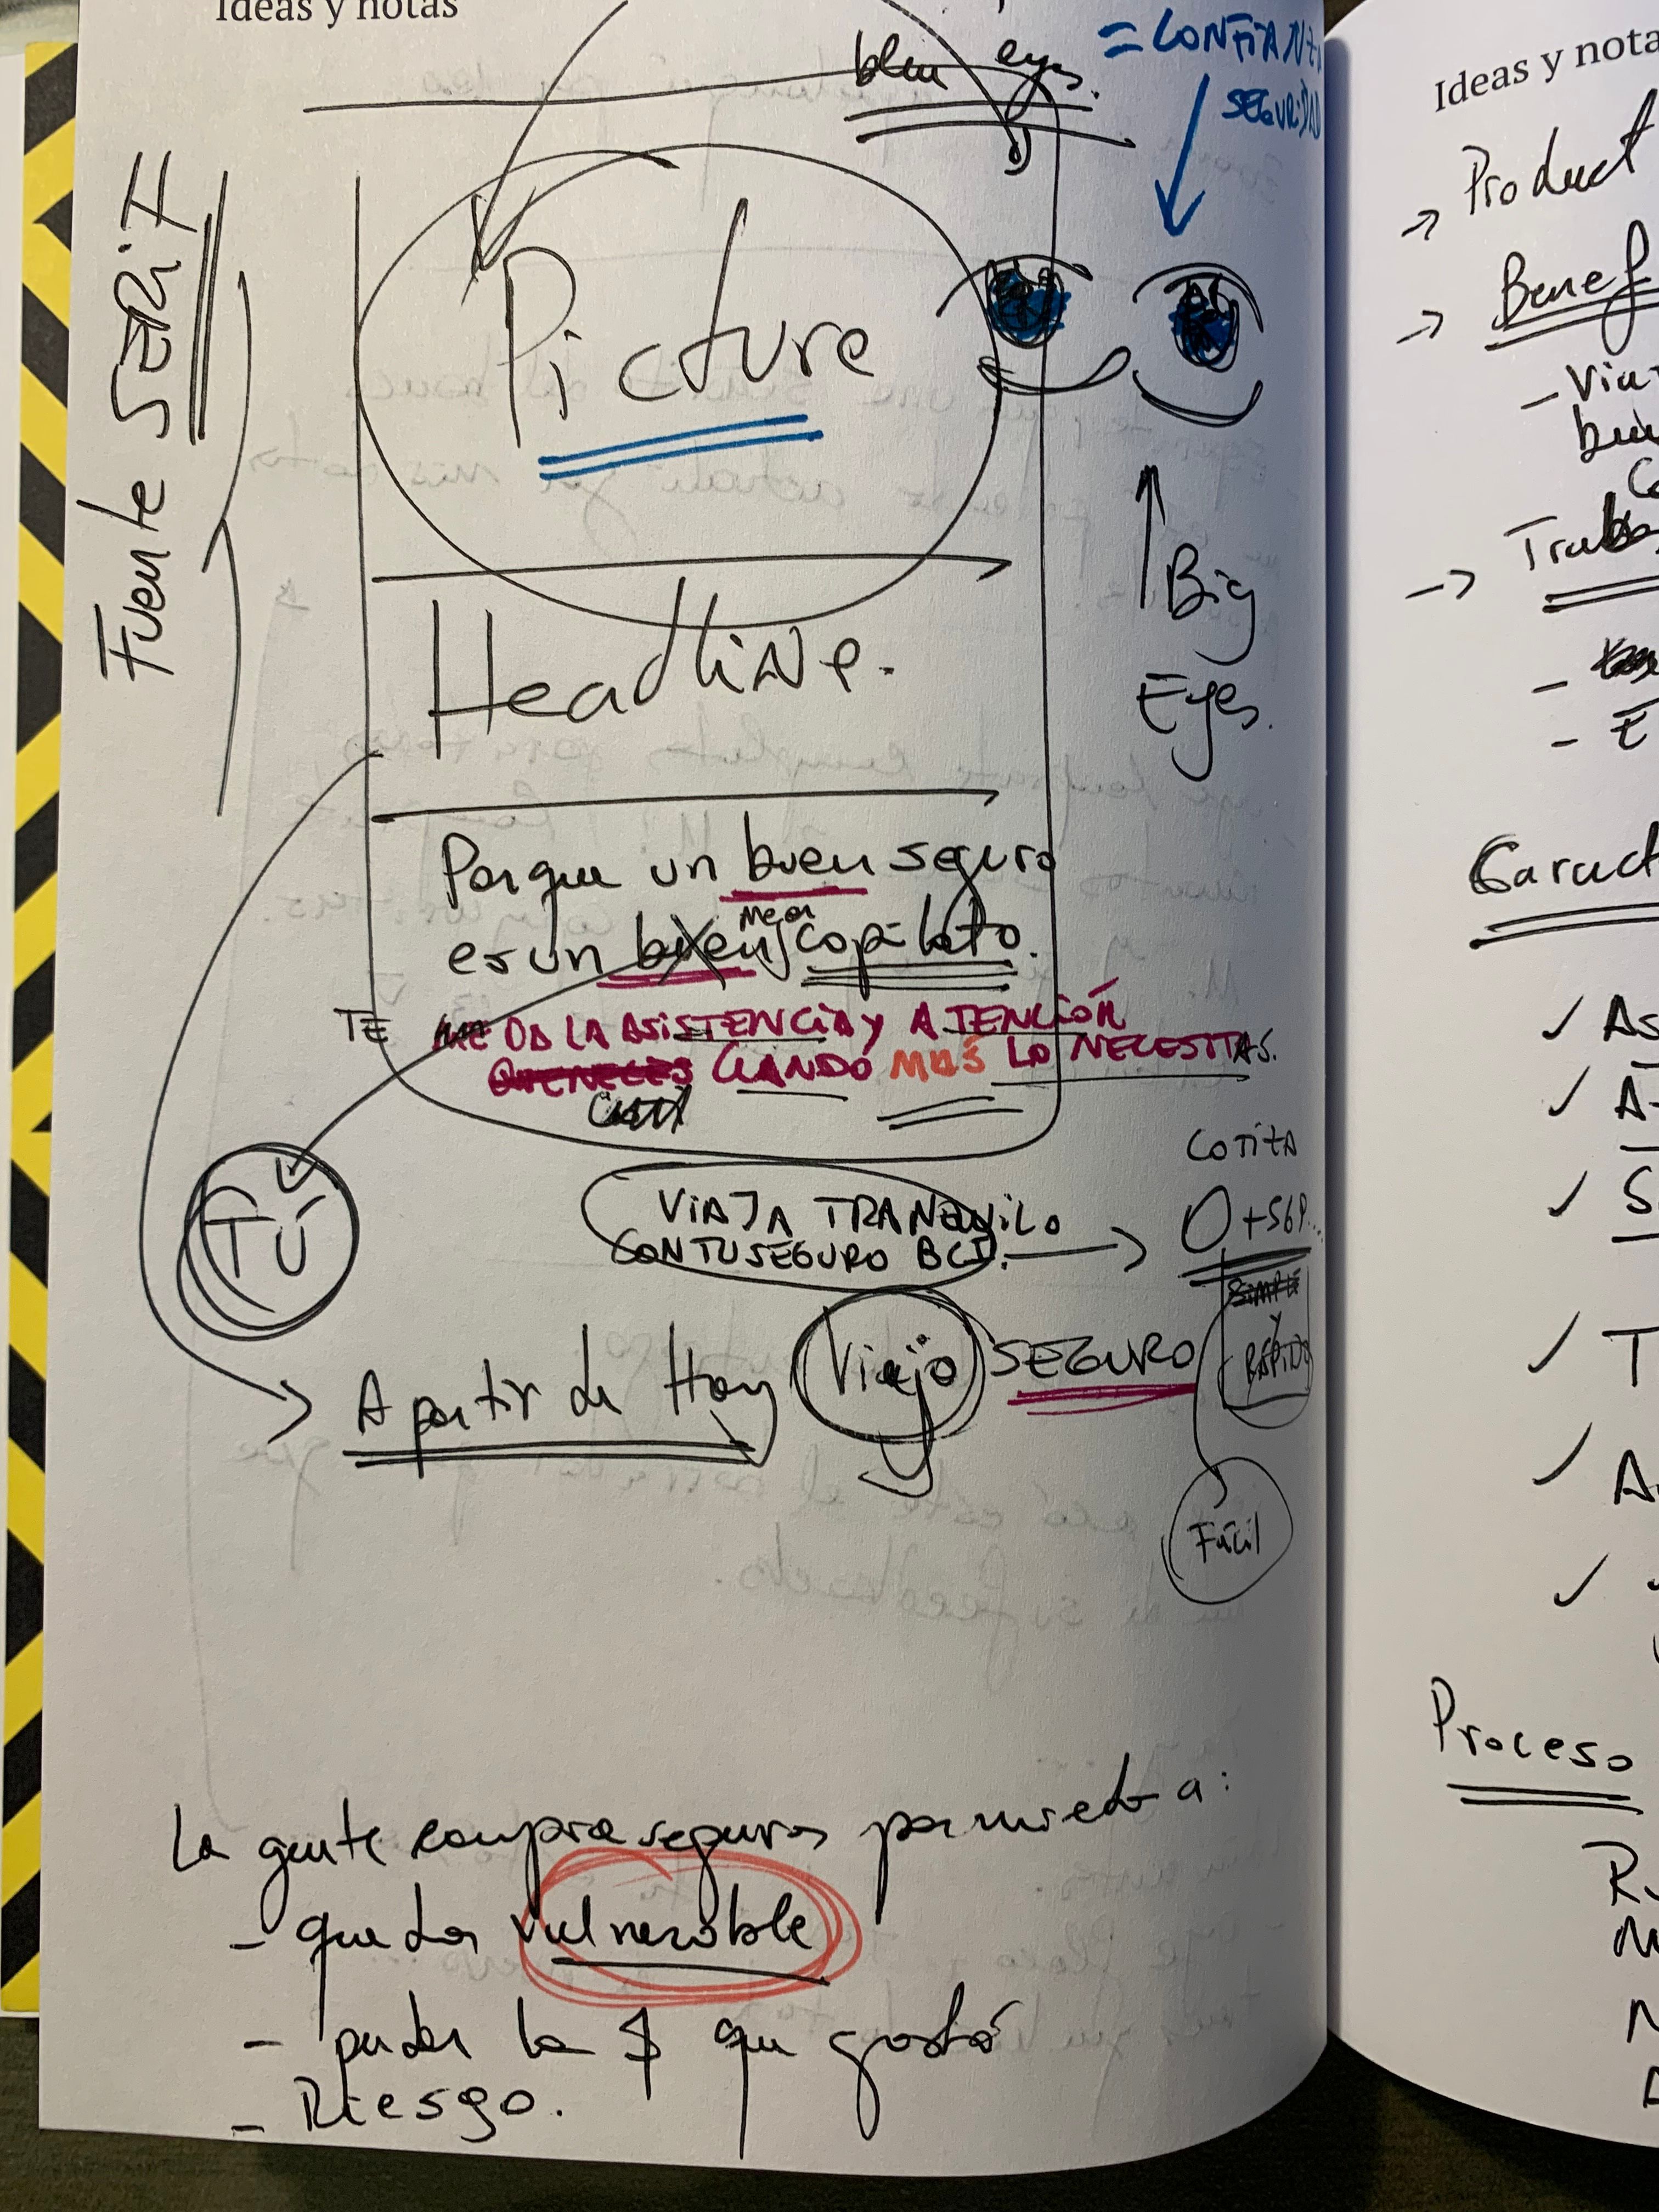 Ideas y notas
bleu eyes.
= CONFIANZA
SEGURIDAD
Fuente SERiF
Picture
Big
Eyes.
Headline.
Porque un buen seguro
es un buen mejor copiloto.
TE ME DA LA ASiSTENCiA y ATENCIÓN
CUANDO MÁS LO NECESITAS.
TÚ
VIAJA TRANQUiLO
CON TU SEGURO BCI.
COTIZA
SiMPLE
Y
RÁPIDO
Fácil
A partir de Hoy Viajo SEGURO
La gente compra seguros por miedo a:
- quedar vulnerable
- perder la $ que gastó
- Riesgo.
Ideas y nota
→ Product
→ Benef
- Via
→ Trab
- E
Caract
✓ As
✓ A
✓ S
✓ T
✓ A
✓
Proceso
R
M